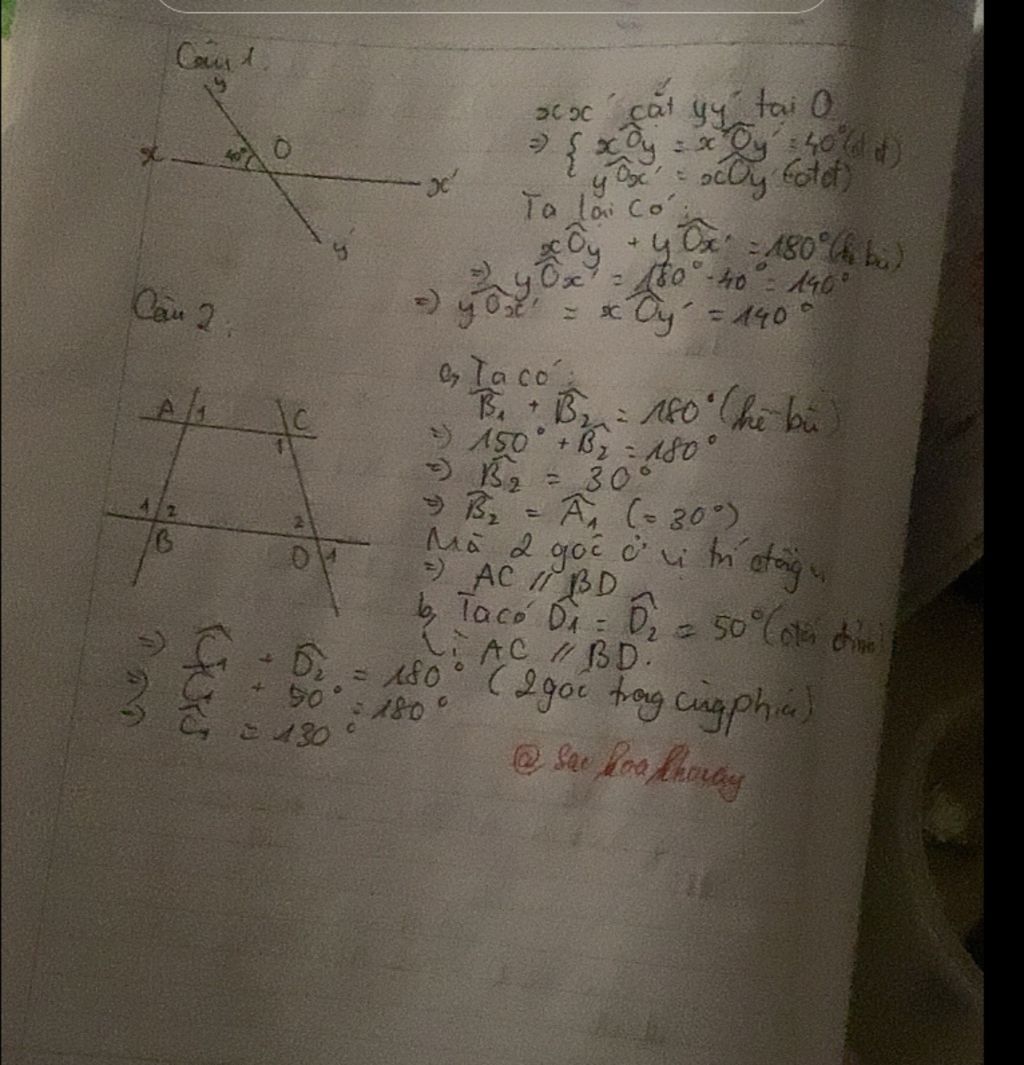 Câu 1.
y
x
40°
O
x'
y'
xx' cắt yy' tại O
=> { xÔy = x'Ôy' = 40° (đđ)
yÔx' = xÔy' (đđ)
Ta lại có:
xÔy + yÔx' = 180° (kề bù)
=> yÔx' = 180° - 40° = 140°
=> yÔx' = xÔy' = 140°
Câu 2:
A 1 C
1
1 2 2
B D 1
a, Ta có:
B̂₁ + B̂₂ = 180° (kề bù)
=> 150° + B̂₂ = 180°
=> B̂₂ = 30°
=> B̂₂ = Â₁ (= 30°)
Mà 2 góc ở vị trí đồng vị
=> AC // BD
b, Ta có D̂₁ = D̂₂ = 50° (đối đỉnh)
Vì AC // BD.
=> Ĉ₁ + D̂₂ = 180° (2 góc trong cùng phía)
=> Ĉ₁ + 50° = 180°
=> Ĉ₁ = 130°
@ Sac hoa